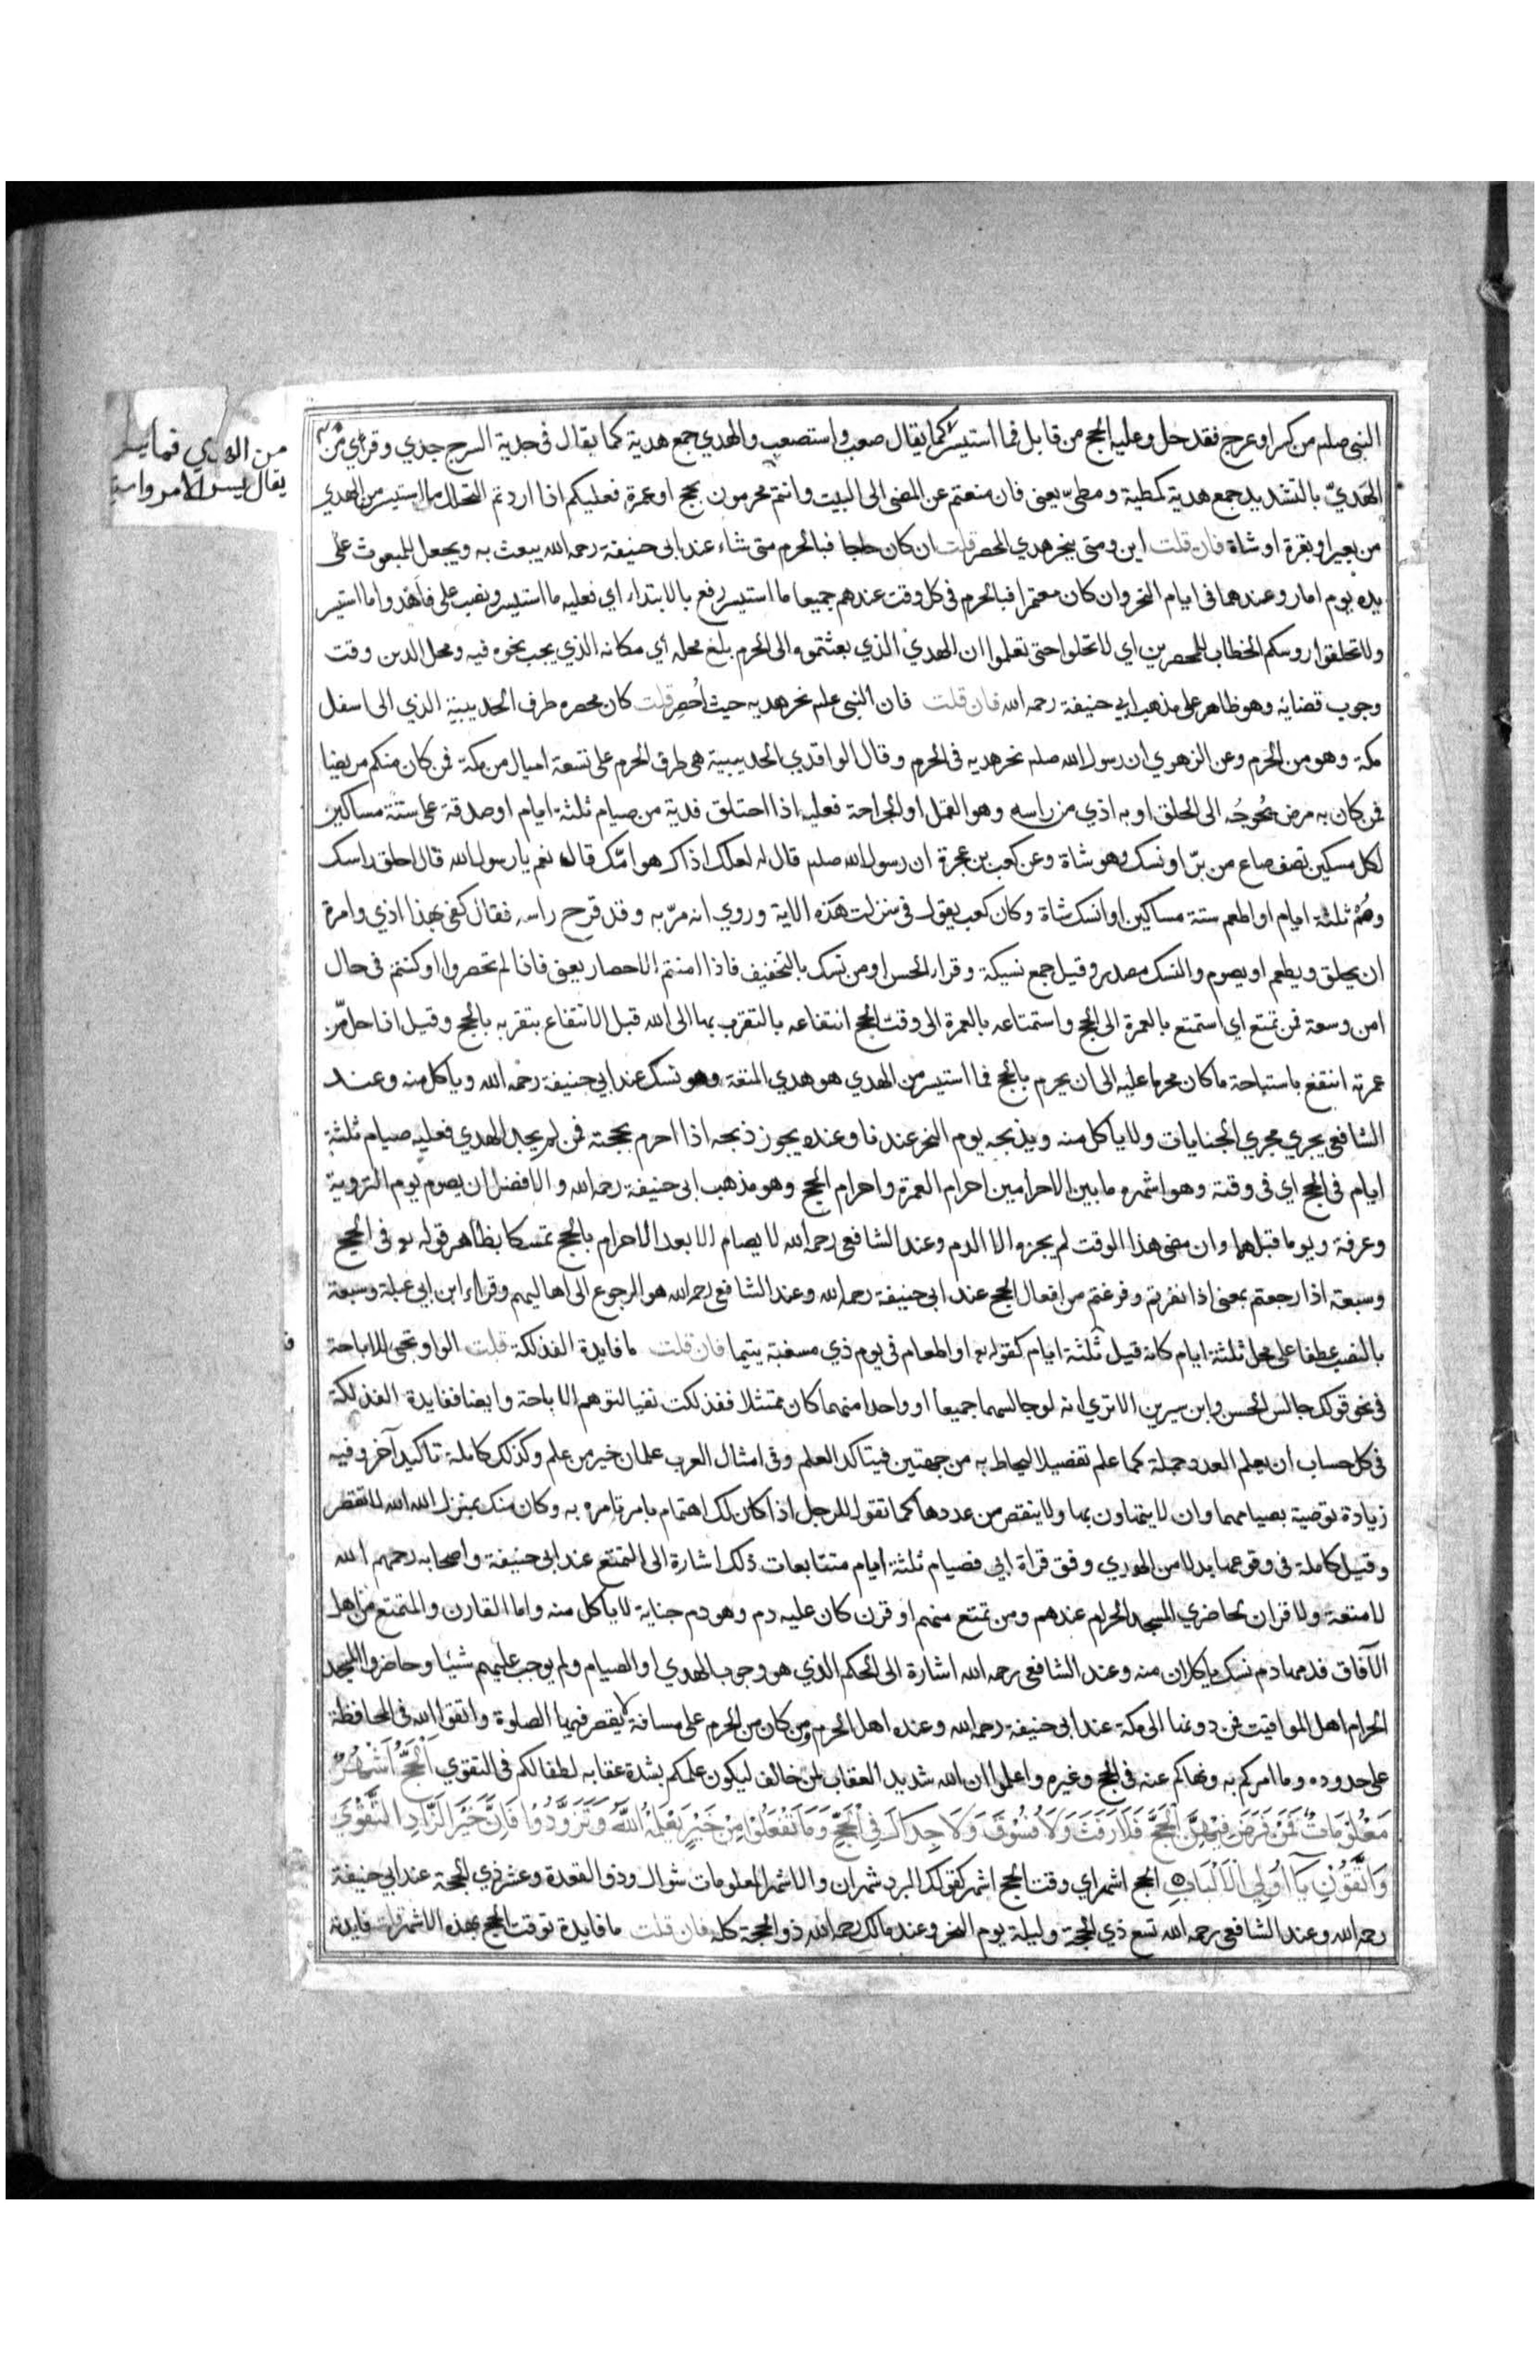 النبى صلم من كسر او عرج فقد حل وعليه الحج من قابل فما استيسر كما يقال صعب واستصعب والهدي جمع هدية كما يقال فى جدية السرج جدي وقرئ من
الهَدِيّ بالتشديد جمع هدية كمطية ومطىّ يعنى فان منعتم عن المضى الى البيت وانتم محرمون بحج او عمرة فعليكم اذا اردتم التحلل ما استيسر من الهدي
من بعير او بقرة او شاة فان قلت اين ومتى ينحر هدي المحصر قلت ان كان حاجا فبالحرم متى شاء عند ابى حنيفة رحمه الله يبعث به ويجعل للمبعوث على
يده يوم امار وعندهما فى ايام النحر وان كان معتمرا فبالحرم فى كل وقت عندهم جميعا ما استيسر رفع بالابتداء اي فعليه ما استيسر ونصب على فاهدوا ما استيسر
ولا تحلقوا روسكم الخطاب للمحصرين اي لا تحلوا حتى تعلموا ان الهدي الذي بعثتموه الى الحرم بلغ محله أي مكانه الذي يجب نحره فيه ومحل الدين وقت
وجوب قضائه وهو ظاهر على مذهب ابي حنيفة رحمه الله فان قلت فان النبى علم نحر هديه حيث اُحصِر قلت كان محصره طرف الحديبية الذي الى اسفل
مكة وهو من الحرم وعن الزهري ان رسول الله صلم نحر هديه فى الحرم وقال الواقدي الحديبية هى طرف الحرم على تسعة اميال من مكة فمن كان منكم مريضا
فمن كان به مرض يُحوِجُه الى الحلق او به اذي من راسه وهو القمل او الجراحة فعليه اذا احتلق فدية من صيام ثلثة ايام او صدقة على ستّة مساكين
لكل مسكين نصف صاع من برّ او نسك وهو شاة وعن كعب بن عجرة ان رسول الله صلم قال له لعلك اذاك هوامّك قال نعم يا رسول الله قال احلق راسك
وصُمْ ثلثة ايام او اطعم ستة مساكين او انسك شاة وكان كعب يقول فى نزلت هذه الاية وروي انه مرّ به وقد قرح راسه فقال كفى بهذا اذي وامرة
ان يحلق ويطعم او يصوم والنسك مصدر وقيل جمع نسيكة وقراء الحسن او من نسك بالتخفيف فاذا امنتم الاحصار يعنى فاذا لم تحصروا او كنتم فى حال
امن وسعة فمن تمتع اي استمتع بالعمرة الى الحج واستمتاعه بالعمرة الى وقت الحج انتفاعه بالتقرب بها الى الله قبل الانتفاع بتقربه بالحج وقيل اذا حل من
عمرته انتفع باستباحة ما كان محرما عليه الى ان يحرم بالحج فما استيسر من الهدي هو هدي المتعة وهو نسك عند ابي حنيفة رحمه الله وياكل منه وعند
الشافعى يجري مجري الجنايات ولا ياكل منه ويذبحه يوم النحر عندنا وعنده يجوز ذبحه اذا احرم بحجته فمن لم يجد الهدي فعليه صيام ثلثة
ايام فى الحج اي فى وقته وهو اشهره ما بين الاحرامين احرام العمرة واحرام الحج وهو مذهب ابى حنيفة رحمه الله والافضل ان يصوم يوم التروية
وعرفة ويوما قبلهما وان مضى هذا الوقت لم يجزه الا الدم وعند الشافعى رحمه الله لا يصام الا بعد الاحرام بالحج تمسكا بظاهر قوله فى الحج
وسبعة اذا رجعتم بمعنى اذا نفرتم وفرغتم من افعال الحج عند ابى حنيفة رحمه الله وعند الشافعى رحمه الله هو الرجوع الى اهاليهم وقراء ابن ابي عبلة وسبعة
بالنصب عطفا على محل ثلثة ايام كانه قيل ثلثة ايام كقوله او اطعام فى يوم ذي مسغبة يتيما فان قلت ما فايدة الفذلكة قلت الواو تجى للاباحة
فى نحو قولك جالس الحسن وابن سيرين الا تري انه لو جالسهما جميعا او واحدا منهما كان ممتثلا ففذلكت نفيا لتوهم الاباحة وايضا ففايدة الفذلكة
فى كل حساب ان يعلم العدد جملة كما علم تفصيلا ليحاط به من جهتين فيتاكد العلم وفى امثال العرب علمان خير من علم وكذلك كاملة تاكيد آخر وفيه
زيادة توصية بصيامهما وان لا يتهاون بها ولا ينقص من عددها كما تقول للرجل اذا كان لك اهتمام بامر تامره به وكان منك بمنزل الله الله لا تقصر
وقيل كاملة فى وقوعها بدلا من الهدي وفق قراة ابي فصيام ثلثة ايام متتابعات ذلك اشارة الى التمتع عند ابى حنيفة واصحابه رحمهم الله
لا متعة ولا قران لحاضري المسجد الحرام عندهم ومن تمتع منهم او قرن كان عليه دم وهو دم جناية لا ياكل منه واما القارن والمتمتع من اهل
الآفاق فدمهما دم نسك ياكلان منه وعند الشافعى رحمه الله اشارة الى الحكم الذي هو وجوب الهدي او الصيام ولم يوجب عليهم شيئا وحاضروا المسجد
الحرام اهل المواقيت فمن دونها الى مكة عند ابى حنيفة رحمه الله وعنده اهل الحرم ومن كان من الحرم على مسافة لا يقصر فيها الصلوة واتقوا الله فى المحافظة
على حدوده وما امركم به ونهاكم عنه فى الحج وغيره واعلموا ان الله شديد العقاب لمن خالف ليكون علمكم بشدة عقابه لطفا لكم فى التقوي اَلْحَجُّ اَشْهُرٌ
مَعْلُومَاتٌ فَمَنْ فَرَضَ فِيْهِنَّ الْحَجَّ فَلَا رَفَثَ وَلَا فُسُوْقَ وَلَا جِدَالَ فِى الْحَجِّ وَمَا تَفْعَلُوْا مِنْ خَيْرٍ يَعْلَمْهُ اللّٰهُ وَتَزَوَّدُوْا فَاِنَّ خَيْرَ الزَّادِ التَّقْوٰي
وَاتَّقُوْنِ يَآ اُولِى الْاَلْبَابِ الحج اشهر اي وقت الحج اشهر كقولك البرد شهران والاشهر المعلومات شوال وذو القعدة وعشر ذي الحجة عند ابي حنيفة
رحمه الله وعند الشافعى رحمه الله تسع ذي الحجة وليلة يوم النحر وعند مالك رحمه الله ذو الحجة كله فان قلت ما فايدة توقت الحج بهذه الاشهر قلت فايدته
من الهدي فما
يقال يسر الامر